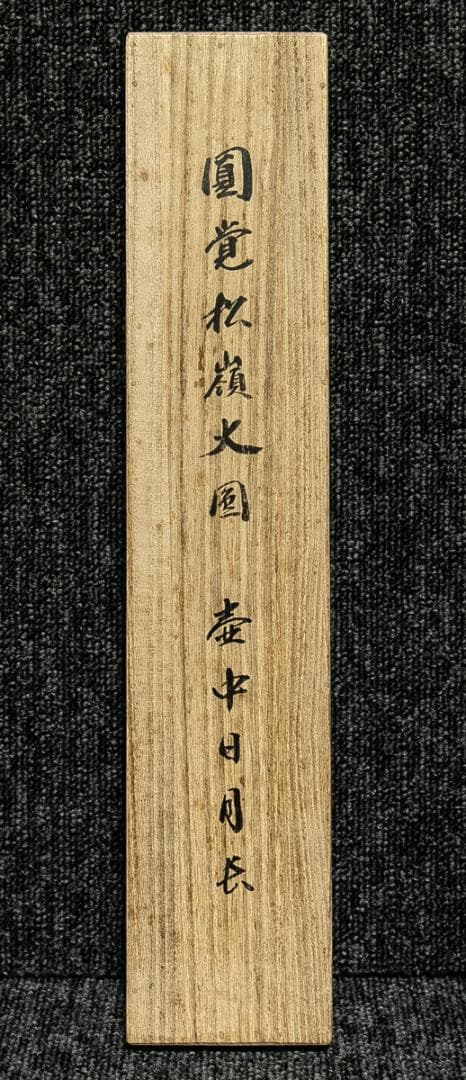 圓覚松嶺大圓 壷中日月长